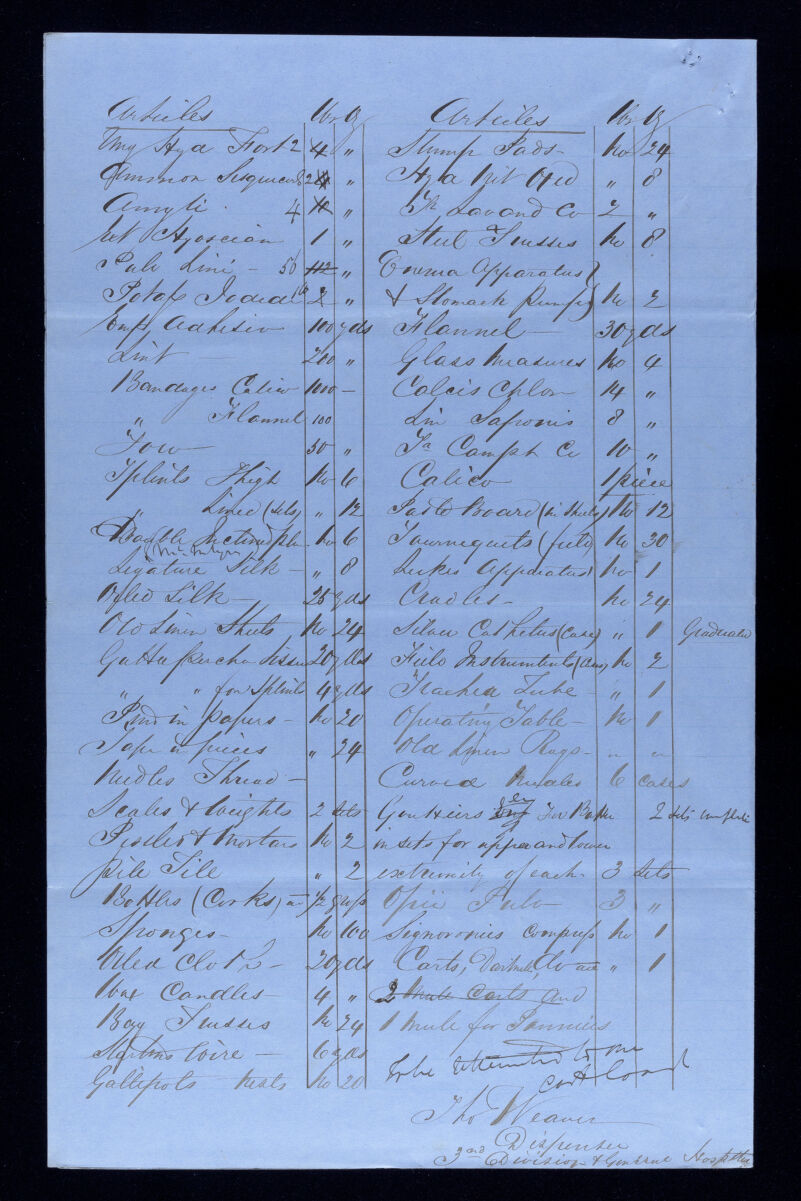 Articles lbs oz
Ung Hyd Fort 2 4 "
Ammon Sesquicarb 2 4 "
Amyli 4 "
Ext Hyosciam 1 "
Pulv Lini - 56 112 "
Potass Iodid 2 "
Emp Adhesiv 100 yds
Lint 200 "
Bandages Calico 1000 -
" Flannel 100
Tow 50 "
Splints Thigh No 6
" Lined (sets) " 12
Double Inclined plane No 6
Ligature Silk - " 8
Oyled Silk - 25 yds
Old Linen Sheets No 24
Gutta percha tissue 20 yds
" " for Splints 4 yds
Pins in papers - No 20
Tape in pieces " 24
Needles Thread -
Scales & Weights 2 sets
Pestles & Mortars No 2
Pill Tile " 2
Bottles (Corks) 1/2 gross
Sponges - No 100
Oiled Cloth - 20 yds
Wax Candles - 4 "
Bag Trusses No 24
wire - 6 yds
Gallepots nests No 20
Articles lbs oz
Stump Pads - No 24
Hyd Nit Oxid " 8
Tr Lavand Co 2 "
Steel Trusses No 8
Enema Apparatus }
& Stomach pumps } No 2
Flannel - 30 yds
Glass Measures No 4
Calcis Chlor 14 "
Lin Saponis 8 "
Tr Camph Co 10 "
Calico 1 piece
Paste board (in sheets) No 12
Tournequets (field) No 30
Lukes Apparatus No 1
Cradles - No 24
Silver Catheters (Case) " 1 Graduated
Field Instruments (Case) No 2
Trachea Tube - " 1
Operating Table - No 1
Old Linen Rags - " "
Curved Needles 6 cases
Gouttiers 2 sets complete
in sets for upper and lower
extremity of each - 3 sets
Opii Pulv 3 "
Signoronies Compress No 1
Carts, " 1
2 Mule Carts and
1 mule for Panniers
to be to one
cart load
Tho Weaver
Dispenser
3rd Division & General Hospital